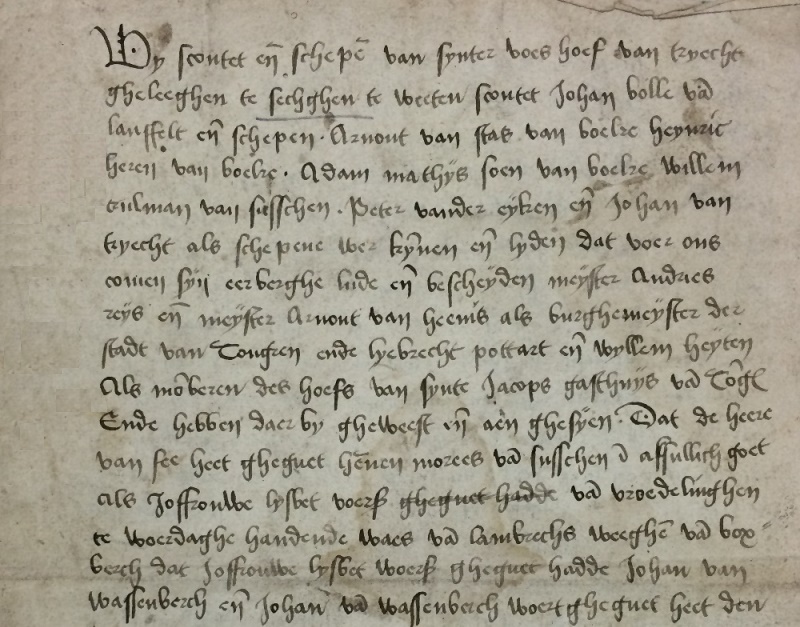 Wy scontet en̄ schepē van synter voes hoef van tryecht
gheleeghen te sechghen te weeten scontet Johan bolle vā
lanffelt en̄ schepen . Arnout van stas van boelre heynric
heren van boelre . Adam mathijs soen van boelre willem
tulman van susschen . Peter vander eyken en̄ Johan van
tryecht als schepene wer kȳnen en̄ lyden dat voer ons
comen syn eerberghe lude en̄ bescheyden meyster Andries
reys en̄ meyster Arnout van heenis als burghemeyster der
stadt van Tongren ende lybrecht pottart en̄ wyllem heyten
Als mōberen des hoefs van synte Jacops gasthuys vā
Ende hebben daer by gheweest en̄ aen ghesyen . Dat de heere
van see heet gheguet hēnen morees vā susschen goet
als Joffrouwe lysbet voers gheguet hadde vā vroedelinghen
te woerdaghe handende waes vā lambrechs weeghē vā box
berch dat Joffrouwe lysbet woers gheguet hadde Johan van
wassenberch en̄ Johan vā wassenberch woert gheguet heet den